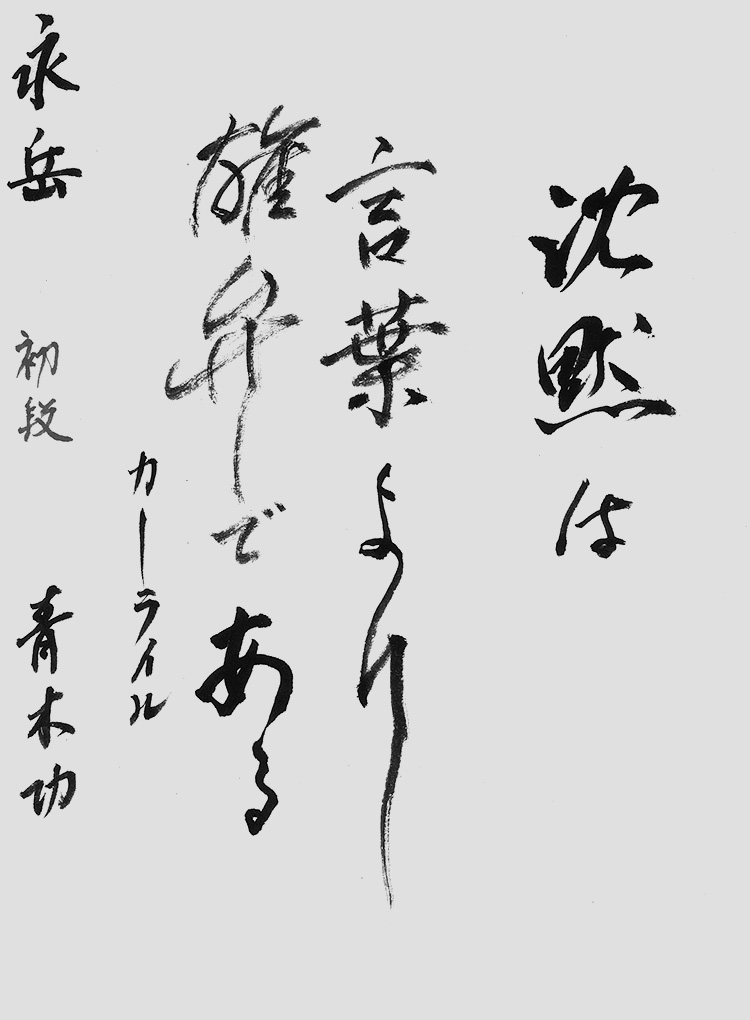 沈黙は
言葉より
雄弁である
カーライル
永岳 初段 青木功